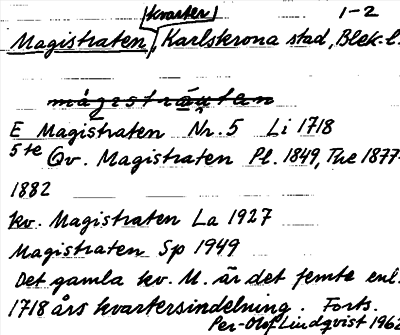 kvarter 1-2
Magistraten, Karlskrona stad, Blek. l.
magistraten
E Magistraten Nr. 5 Li 1718
5te Qv. Magistraten Pl. 1849, The 1877-
1882
kv. Magistraten La 1927
Magistraten Sp 1949
Det gamla kv. M. är det femte enl.
1718 års kvartersindelning. Forts.
Per-Olof Lindqvist 1962